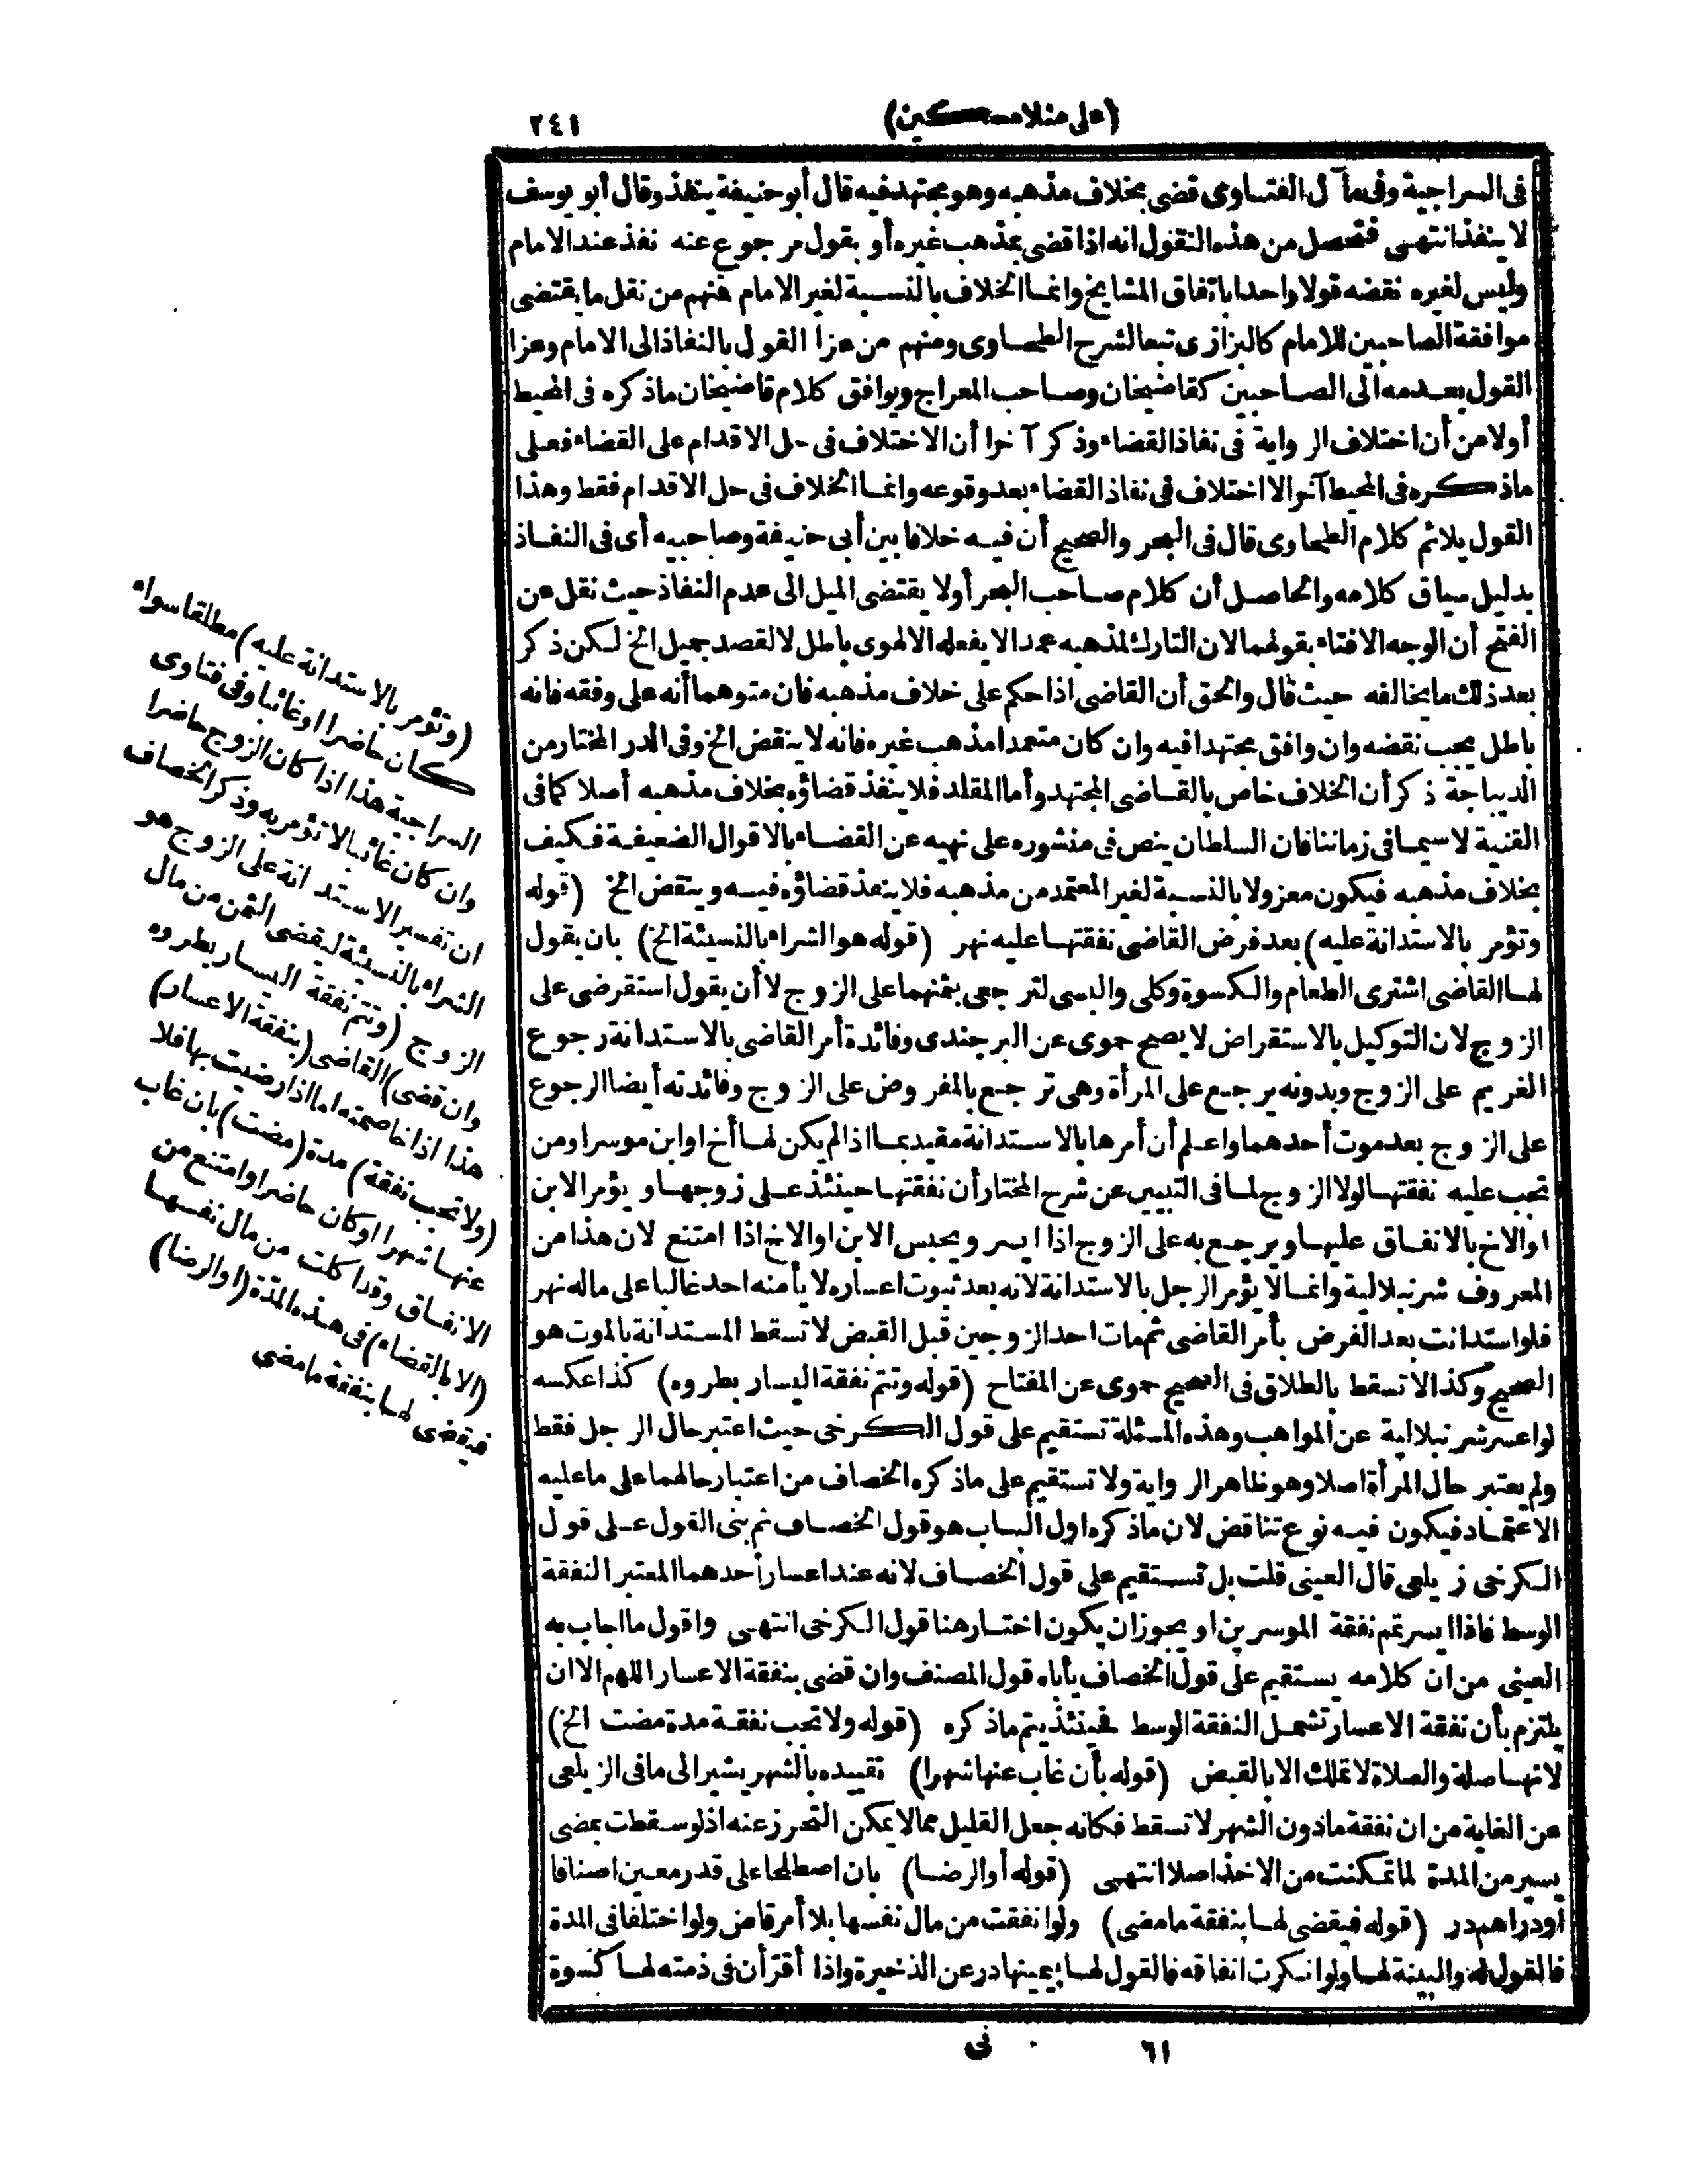 (على منلا مسكين)
٢٤١
فى السراجية وفى مآ ل الفتاوى قضى بخلاف مذهبه وهو مجتهد فيه قال أبو حنيفة ينفذ وقال أبو يوسف
لا ينفذ انتهى فتحصل من هذه النقول انه اذا قضى بمذهب غيره أو بقول مرجوع عنه نفذ عند الامام
وليس لغيره نقضه قولا واحدا باتفاق المشايخ وانما الخلاف بالنسبة لغير الامام فنهم من نقل ما يقتضى
موافقة الصاحبين للامام كالبزازى تبعا لشرح الطحاوى ومنهم من عزا القول بالنفاذ الى الامام وعزا
القول بعدمه الى الصاحبين كقاضيخان وصاحب المعراج ويوافق كلام قاضيخان ماذكره فى المحيط
أولا من أن اختلاف الرواية فى نفاذ القضاء وذكر آخرا أن الاختلاف فى حل الاقدام على القضاء فعلى
ماذكره فى المحيط آخرا لا اختلاف فى نفاذ القضاء بعد وقوعه وانما الخلاف فى حل الاقدام فقط وهذا
القول يلائم كلام الطحاوى قال فى البحر والصحيح أن فيه خلافا بين أبى حنيفة وصاحبيه أى فى النفاذ
بدليل سياق كلامه والحاصل أن كلام صاحب البحر أولا يقتضى الميل الى عدم النفاذ حيث نقل عن
الفتح أن الوجه الافتاء بقولهما لان التارك لمذهبه عمدا لا يفعله الا لهوى باطل لا لقصد جميل الخ لكن ذكر
بعد ذلك ما يخالفه حيث قال والحق أن القاضى اذا حكم على خلاف مذهبه فان متوهما أنه على وفقه فانه
باطل يجب نقضه وان وافق مجتهدا فيه وان كان متعمدا مذهب غيره فانه لا ينقض الخ وفى الدر المختار من
الديباجة ذكر أن الخلاف خاص بالقاضى المجتهد وأما المقلد فلا ينفذ قضاؤه بخلاف مذهبه أصلا كما فى
القنية لا سيما فى زماننا فان السلطان ينص فى منشوره على نهيه عن القضاء بالاقوال الضعيفة فكيف
بخلاف مذهبه فيكون معزولا بالنسبة لغير المعتمد من مذهبه فلا ينفذ قضاؤه فيه وينقض الخ (قوله
وتؤمر بالاستدانة عليه) بعد فرض القاضى نفقتها عليه نهر (قوله هو الشراء بالنسيئة الخ) بان يقول
لها القاضى اشترى الطعام والكسوة وكلى والبسى لترجعى بثمنهما على الزوج لا أن يقول استقرضى على
الزوج لان التوكيل بالاستقراض لا يصح حموى عن البرجندى وفائدة أمر القاضى بالاستدانة رجوع
الغريم على الزوج وبدونه يرجع على المرأة وهى ترجع بالمفروض على الزوج وفائدته أيضا الرجوع
على الزوج بعد موت أحدهما واعلم أن أمرها بالاستدانة مقيد بما اذا لم يكن لها أخ او ابن موسر او من
تجب عليه نفقتها لولا الزوج لما فى التبيين عن شرح المختار أن نفقتها حينئذ على زوجها ويؤمر الابن
او الاخ بالانفاق عليها ويرجع به على الزوج اذا ايسر ويحبس الابن او الاخ اذا امتنع لان هذا من
المعروف شرنبلالية وانما لا يؤمر الرجل بالاستدانة لانه بعد ثبوت اعساره لا يأمنه احد غالبا على ماله نهر
فلو استدانت بعد الفرض بأمر القاضى ثم مات احد الزوجين قبل القبض لا تسقط المستدانة بالموت هو
الصحيح وكذا لا تسقط بالطلاق فى الصحيح حموى عن المفتاح (قوله وتتم نفقة اليسار بطروه) كذا عكسه
لو اعسر شرنبلالية عن المواهب وهذه المسئلة تستقيم على قول الكرخى حيث اعتبر حال الرجل فقط
ولم يعتبر حال المرأة اصلا وهو ظاهر الرواية ولا تستقيم على ماذكره الخصاف من اعتبار حالهما على ما عليه
الاعتماد فيكون فيه نوع تناقض لان ماذكره اول الباب هو قول الخصاف ثم بنى القول على قول
الكرخى زيلعى قال العينى قلت بل تستقيم على قول الخصاف لانه عند اعسار أحدهما المعتبر النفقة
الوسط فاذا ايسر تتم نفقة الموسرين او يجوز ان يكون اختار هنا قول الكرخى انتهى واقول ما اجاب به
العينى من ان كلامه يستقيم على قول الخصاف يأباه قول المصنف وان قضى بنفقة الاعسار اللهم الا ان
يلتزم بأن نفقة الاعسار تشمل النفقة الوسط فحينئذ يتم ماذكره (قوله ولا تجب نفقة مدة مضت الخ)
لانها صلة والصلاة لا تملك الا بالقبض (قوله بأن غاب عنها شهرا) تقييده بالشهر يشير الى ما فى الزيلعى
عن الغاية من ان نفقة مادون الشهر لا تسقط فكانه جعل القليل مما لا يمكن التحرز عنه اذ لو سقطت بمضى
يسير من المدة لما تمكنت من الاخذ اصلا انتهى (قوله أو الرضا) بان اصطلحا على قدر معين اصنافا
أو دراهم در (قوله فيقضى لها بنفقة ما مضى) ولو انفقت من مال نفسها بلا أمر قاض ولو اختلفا فى المدة
فالقول له والبينة لها ولو انكرت انفاقه فالقول لها بيمينها در عن الذخيرة واذا أقر أن فى ذمته لها كسوة
(وتؤمر بالاستدانة عليه) مطلقا سواء
كان حاضرا او غائبا وفى فتاوى
السراجية هذا اذا كان الزوج حاضرا
وان كان غائبا لا تؤمر به وذكر الخصاف
ان تفسير الاستدانة على الزوج هو
الشراء بالنسيئة ليقضى الثمن من مال
الزوج (وتتم نفقة اليسار بطروه
وان قضى) القاضى (بنفقة الاعسار)
هذا اذا خاصمته اما اذا رضيت بها فلا
(ولا تجب نفقة) مدة (مضت) بان غاب
عنها شهرا او كان حاضرا وامتنع من
الانفاق وقد اكلت من مال نفسها
(الا بالقضاء) فى هذه المدة (او الرضا)
فيقضى لها بنفقة ما مضى
٦١
نى